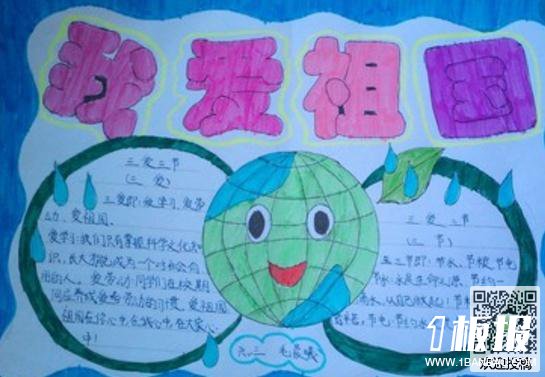 我爱祖国
三爱三节
(三爱)
三爱即:爱学习,爱劳
动、爱祖国。
爱学习:我们只有掌握科学文化知
识,长大才能成为一个对社会有
用的人。爱劳动:同学们在校期
间应养成爱劳动的习惯。爱祖国:
祖国在你心中在我心中在大家心
中!
三爱三节
(三节)
三节即:节水、节粮、节电
节水:水是生命之源
滴水,从自己做起!节
节电:节约
六.二
1板报
WWW.1BANBAO.COM
欢迎投稿